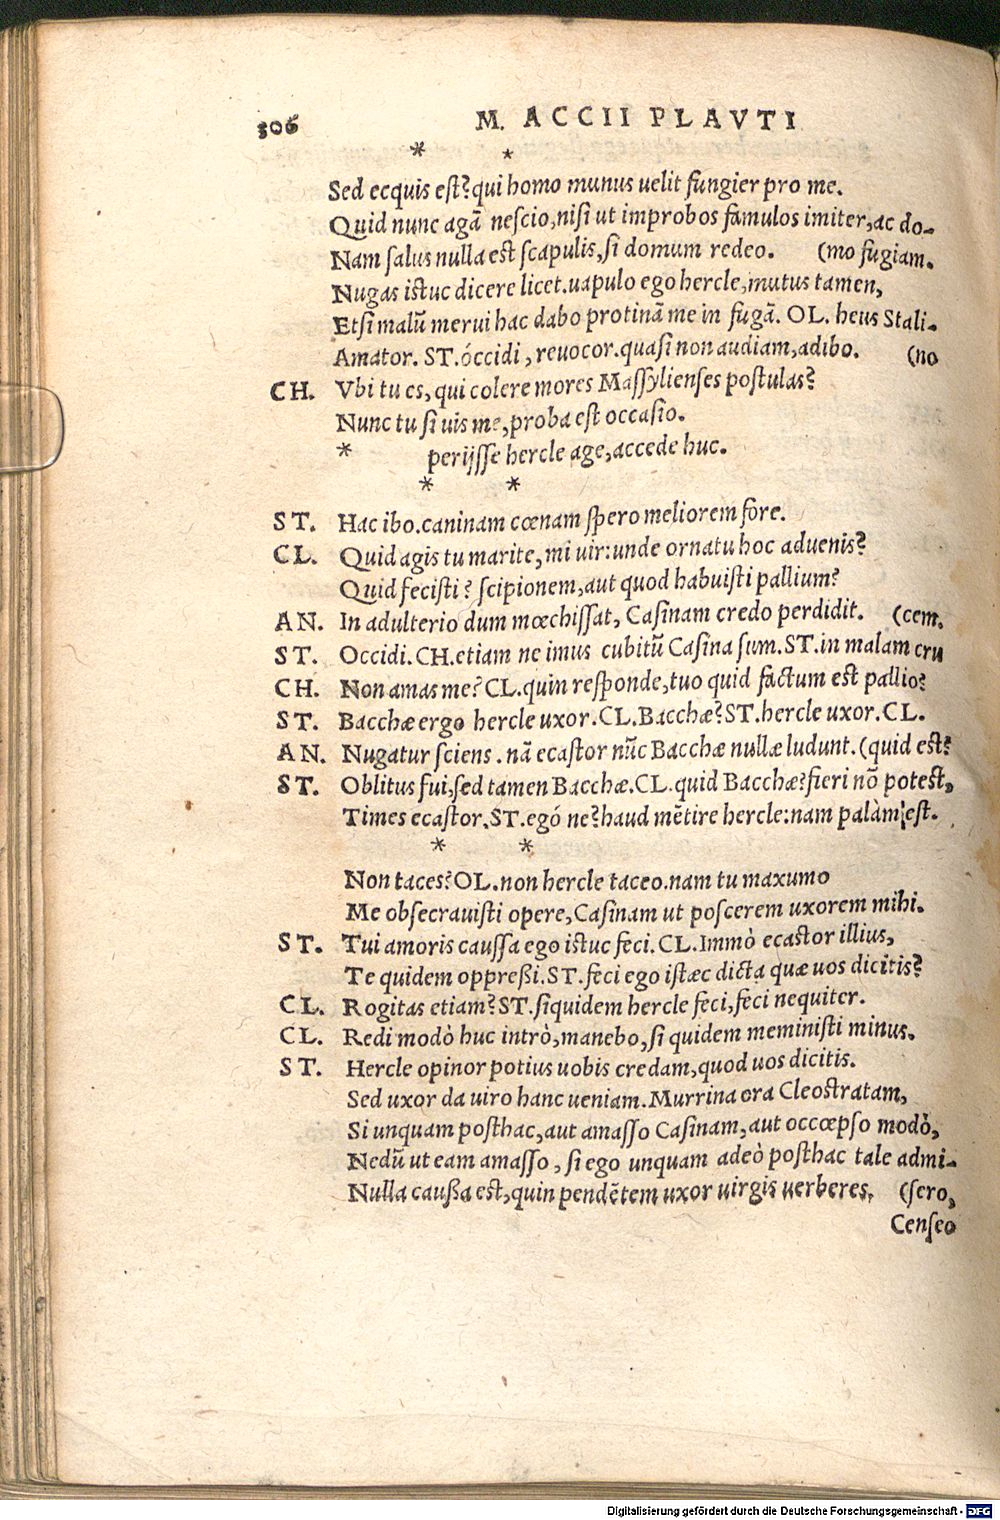 306 M. ACCII PLAVTI
* *
Sed ecquis est? qui homo munus uelit fungier pro me.
Quid nunc agā nescio, nisi ut improbos famulos imiter, ac do-
Nam salus nulla est scapulis, si domum redeo. (mo fugiam.
Nugas istuc dicere licet. uapulo ego hercle, inuitus tamen,
Etsi malū merui hac dabo protinā me in fugā. OL. heus Stali-
Amator. ST. óccidi, reuocor. quasi non audiam, adibo. (no
CH. Vbi tu es, qui colere mores Massylienses postulas?
Nunc tu si uis me, proba est occasio.
* perijsse hercle age, accede huc.
* *
ST. Hac ibo. caninam cœnam spero meliorem fore.
CL. Quid agis tu marite, mi uir: unde ornatu hoc aduenis?
Quid fecisti? scipionem, aut quod habuisti pallium?
AN. In adulterio dum mœchissat, Casinam credo perdidit. (cem.
ST. Occidi. CH. etiam ne imus cubitū Casina sum. ST. in malam cru
CH. Non amas me? CL. quin responde, tuo quid factum est pallio?
ST. Bacchæ ergo hercle uxor. CL. Bacchæ? ST. hercle uxor. CL.
AN. Nugatur sciens. nā ecastor nūc Bacchæ nullæ ludunt. (quid est?
ST. Oblitus fui, sed tamen Bacchæ. CL. quid Bacchæ? fieri nō potest,
Times ecastor. ST. egó ne? haud mētire hercle: nam palàm est.
* *
Non taces? OL. non hercle taceo. nam tu maxumo
Me obsecrauisti opere, Casinam ut poscerem uxorem mihi.
ST. Tui amoris caussa ego istuc feci. CL. Immò ecastor illius,
Te quidem oppreßi. ST. feci ego istæc dicta quæ uos dicitis?
CL. Rogitas etiam? ST. siquidem hercle feci, feci nequiter.
CL. Redi modò huc intrò, manebo, si quidem meministi minus.
ST. Hercle opinor potius uobis credam, quod uos dicitis.
Sed uxor da uiro hanc ueniam. Murrina ora Cleostratam,
Si unquam posthac, aut amasso Casinam, aut occœpso modò,
Nedū ut eam amasso, si ego unquam adeò posthac tale admi-
Nulla caußa est, quin pendētem uxor uirgis uerberes. (sero,
Censeo
Digitalisierung gefördert durch die Deutsche Forschungsgemeinschaft - DFG